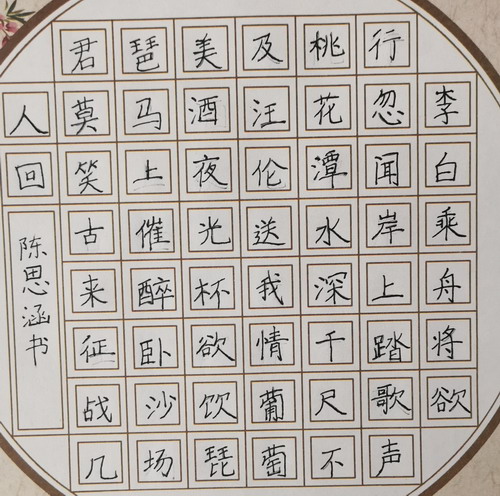 李白乘舟将欲
行忽闻岸上踏歌声
桃花潭水深千尺不
及汪伦送我情葡萄
美酒夜光杯欲饮琵
琶马上催醉卧沙场
君莫笑古来征战几
人回
陈思涵书